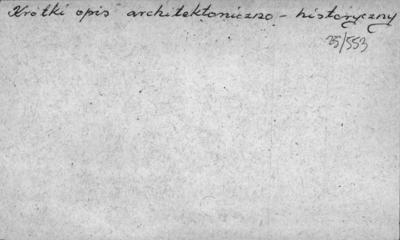 Krótki opis architektoniczno - historyczny
25/553